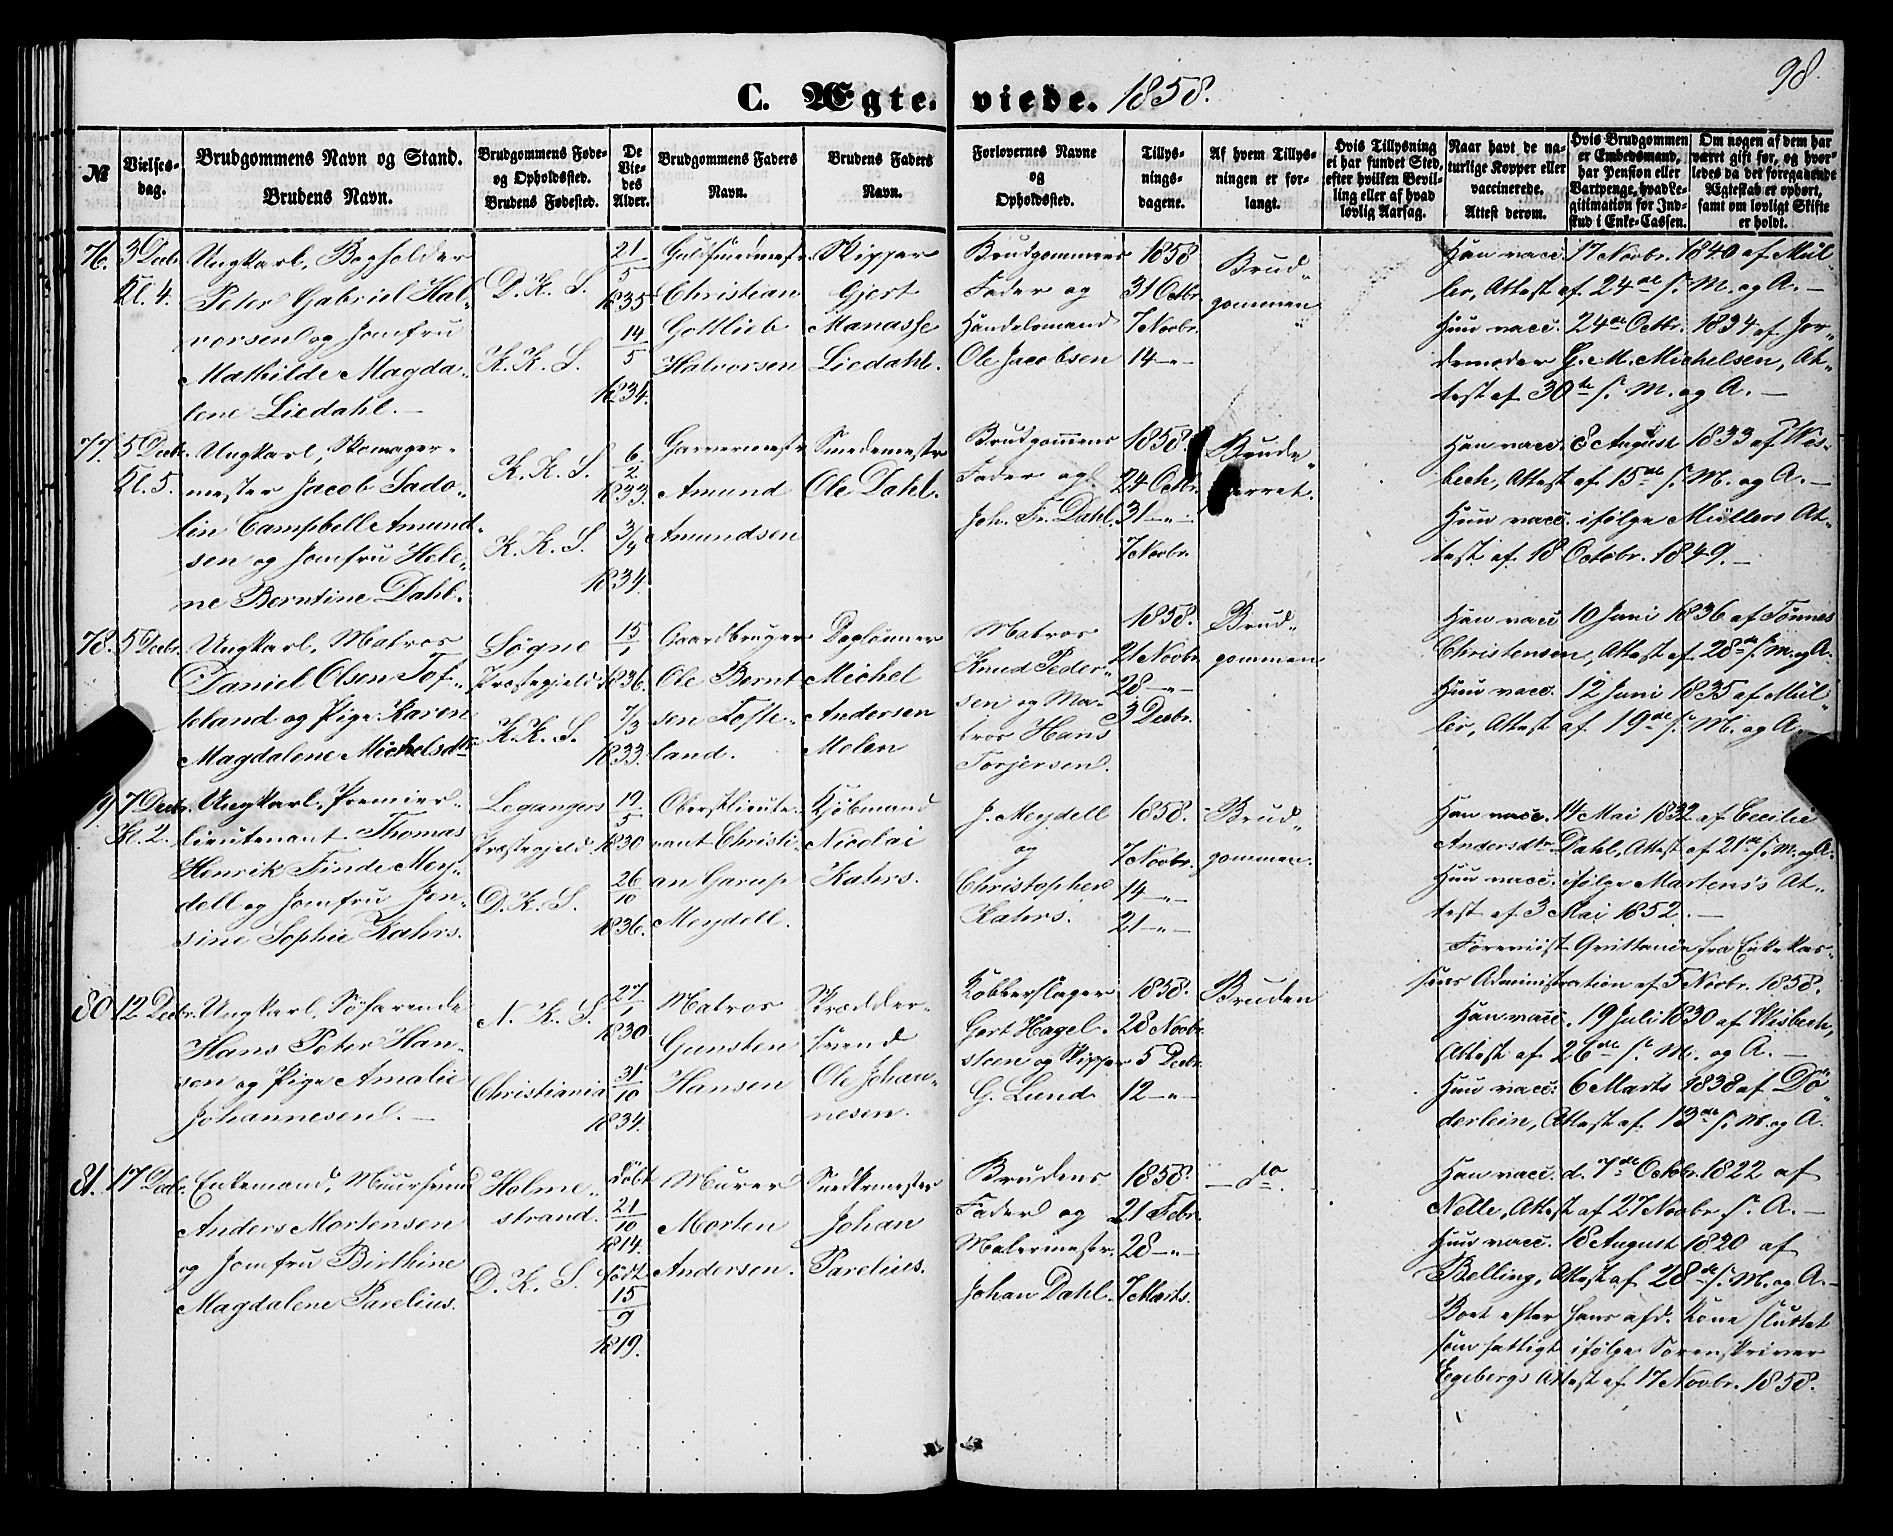 98
C. Ægte-
viede. 1858.
№
Vielses-
dag.
Brudgommens Navn og Stand.
Brudens Navn.
Brudgommens Føde-
og Opholdssted.
Brudens Fødested.
De
Vie-
des
Alder.
Brudgommens Faders
Navn.
Brudens Faders
Navn.
Forlovernes Navne
og
Opholdssted.
Tillys-
nings-
dagene.
Af hvem Tillys-
ningen er for-
langt.
Hvis Tillysning
ei har fundet Sted,
efter hvilken Bevil-
ling eller af hvad
lovlig Aarsag.
Naar havt de na-
turlige Kopper eller
vaccinerede.
Attest derom.
Hvis Brudgommen
er Embedsmand,
har Pension eller
Vartpenge, hvad Le-
gitimation for Ind-
skud i Enke-Cassen.
Om nogen af dem har
været gift før, og hvor-
ledes da det foregaaende
Ægteskab er ophørt,
samt om lovligt Skifte
er holdt.
76.
3 Decbr.
Kl. 4.
Ungkarl, Bogholder
Peter Gabriel Hal-
vorsen og Jomfru
Mathilde Magda-
lene Liedahl. —
D. K. S.
K. K. S.
21/5
1835
14/5
1834.
Guldsmedmestr.
Christian
Gottlieb
Halvorsen
Skipper
Gjert
Manasse
Liedahl.
Brudgommens
Fader og
Handelsmand
Ole Jacobsen
1858
31 Octbr.
7 Novbr.
14 —„—
Brud-
gommen
Han vacc. 17 Novbr. 1840 af Mül-
ler, Attest af 24de s. M. og A. —
Hun vacc. 24de Octbr. 1834 af Jor-
demoder G. M. Michelsen, At-
test af 30te s. M. og A. —
77.
5 Decbr.
Kl. 5.
Ungkarl, Skomager-
mester Jacob Sado-
lin Campbell Amund-
sen og Jomfru Hele-
ne Berntine Dahl.
K. K. S.
K. K. S.
6/2
1833.
3/4
1834.
Garvermestr
Amund
Amundsen
Smedemestr
Ole Dahl.
Brudgommens
Fader og
Joh. Fr. Dahl.
1858.
24 Octbr.
31 —„—
7 Novbr.
Brude-
parret.
Han vacc. 8 August 1833 af Wis-
bech, Attest af 15de s. M. og A. —
Hun vacc. ifølge Müllers At-
test af 18 Octobr. 1849. —
78.
5 Decbr.
Ungkarl, Matros
Daniel Olsen Tof-
teland og Pige Karen
Magdalene Michelsdtr.
Søgne
Præstegjeld
K. K. S.
15/1
1836.
7/3
1833.
Gaardbruger
Ole Bernt-
sen Tofte-
land.
Daglønner
Michel
Andersen
Molen
Matros
Knud Peder-
sen og Ma-
tros Hans
Torjersen.
1858.
21 Novbr.
28 —„—
3 Decbr.
Brud-
gommen
Han vacc 10 Juni 1836 af Tønnes
Christensen, Attest af 28de s. M. og A.
Hun vacc. 12 Juni 1835 af Mül-
ler, Attest af 19de s. M. og A. —
9.
7 Decbr.
Kl. 2.
Ungkarl, Premier-
lieutenant Thomas
Henrik Finde Mey-
dell og Jomfru Jen-
sine Sophie Kahrs.
Legangers
Præstegjeld
D. K. S.
19/5
1830
26/10
1836.
Oberstlieute-
nant Christi-
an Garup
Meydell.
Kjøbmand
Nicolai
Kahrs.
J. Meydell
og
Christopher
Kahrs.
1858.
7 Novbr.
14 —„—
21 —„—
Brud-
gommen.
Han vacc. 14 Mai 1832 af Cecilie
Andersdtr. Dahl, Attest af 21de s. M. og A.
Hun vacc. ifølge Martens's At-
test af 3 Mai 1852. —
Forevist Qvittance fra Enkekas-
sens Administration af 5 Novbr. 1858.
80
12 Decbr.
Ungkarl, Søfarende
Hans Peter Han-
sen og Pige Amalie
Johannesen. —
N. K. S.
Christiania
27/1
1830.
31/10
1834.
Matros
Gunsten
Hansen
Skrædder-
svend
Ole Johan-
nesen.
Kobberslager
Gert Hagel-
steen og Skipper
G. Lund
1858.
28 Novbr.
5 Decbr.
12 —„—
Bruden
Han vacc. 19 Juli 1830 af Wisbech,
Attest af 26de s. M. og A. —
Hun vacc. 6 Marts 1838 af Dö-
derlein, Attest af 13de s. M. og A.
81.
17 Decbr.
Enkemand, Muursvend
Anders Mortensen
og Jomfru Birthine
Magdalene Parelius.
Holme-
strand.
D. K. S.
døbt
21/10
1814.
født
15/9
1819.
Murer
Morten
Andersen.
Snedkermester
Johan
Parelius.
Brudens
Fader og
Malermestr.
Johan Dahl.
1858.
21 Febr.
28 —„—
7 Marts.
— do.
Han vacc. d. 7de Octobr. 1822 af
Nelle, Attest af 27 Novbr. s. A. —
Hun vacc. 18 August 1820 af
Belling, Attest af 28de s. M. og A. —
Boet efter Hans afd. Kone sluttet
som fattigt ifølge Sorenskriver
Egebergs Attest af 17 Novbr. 1858.